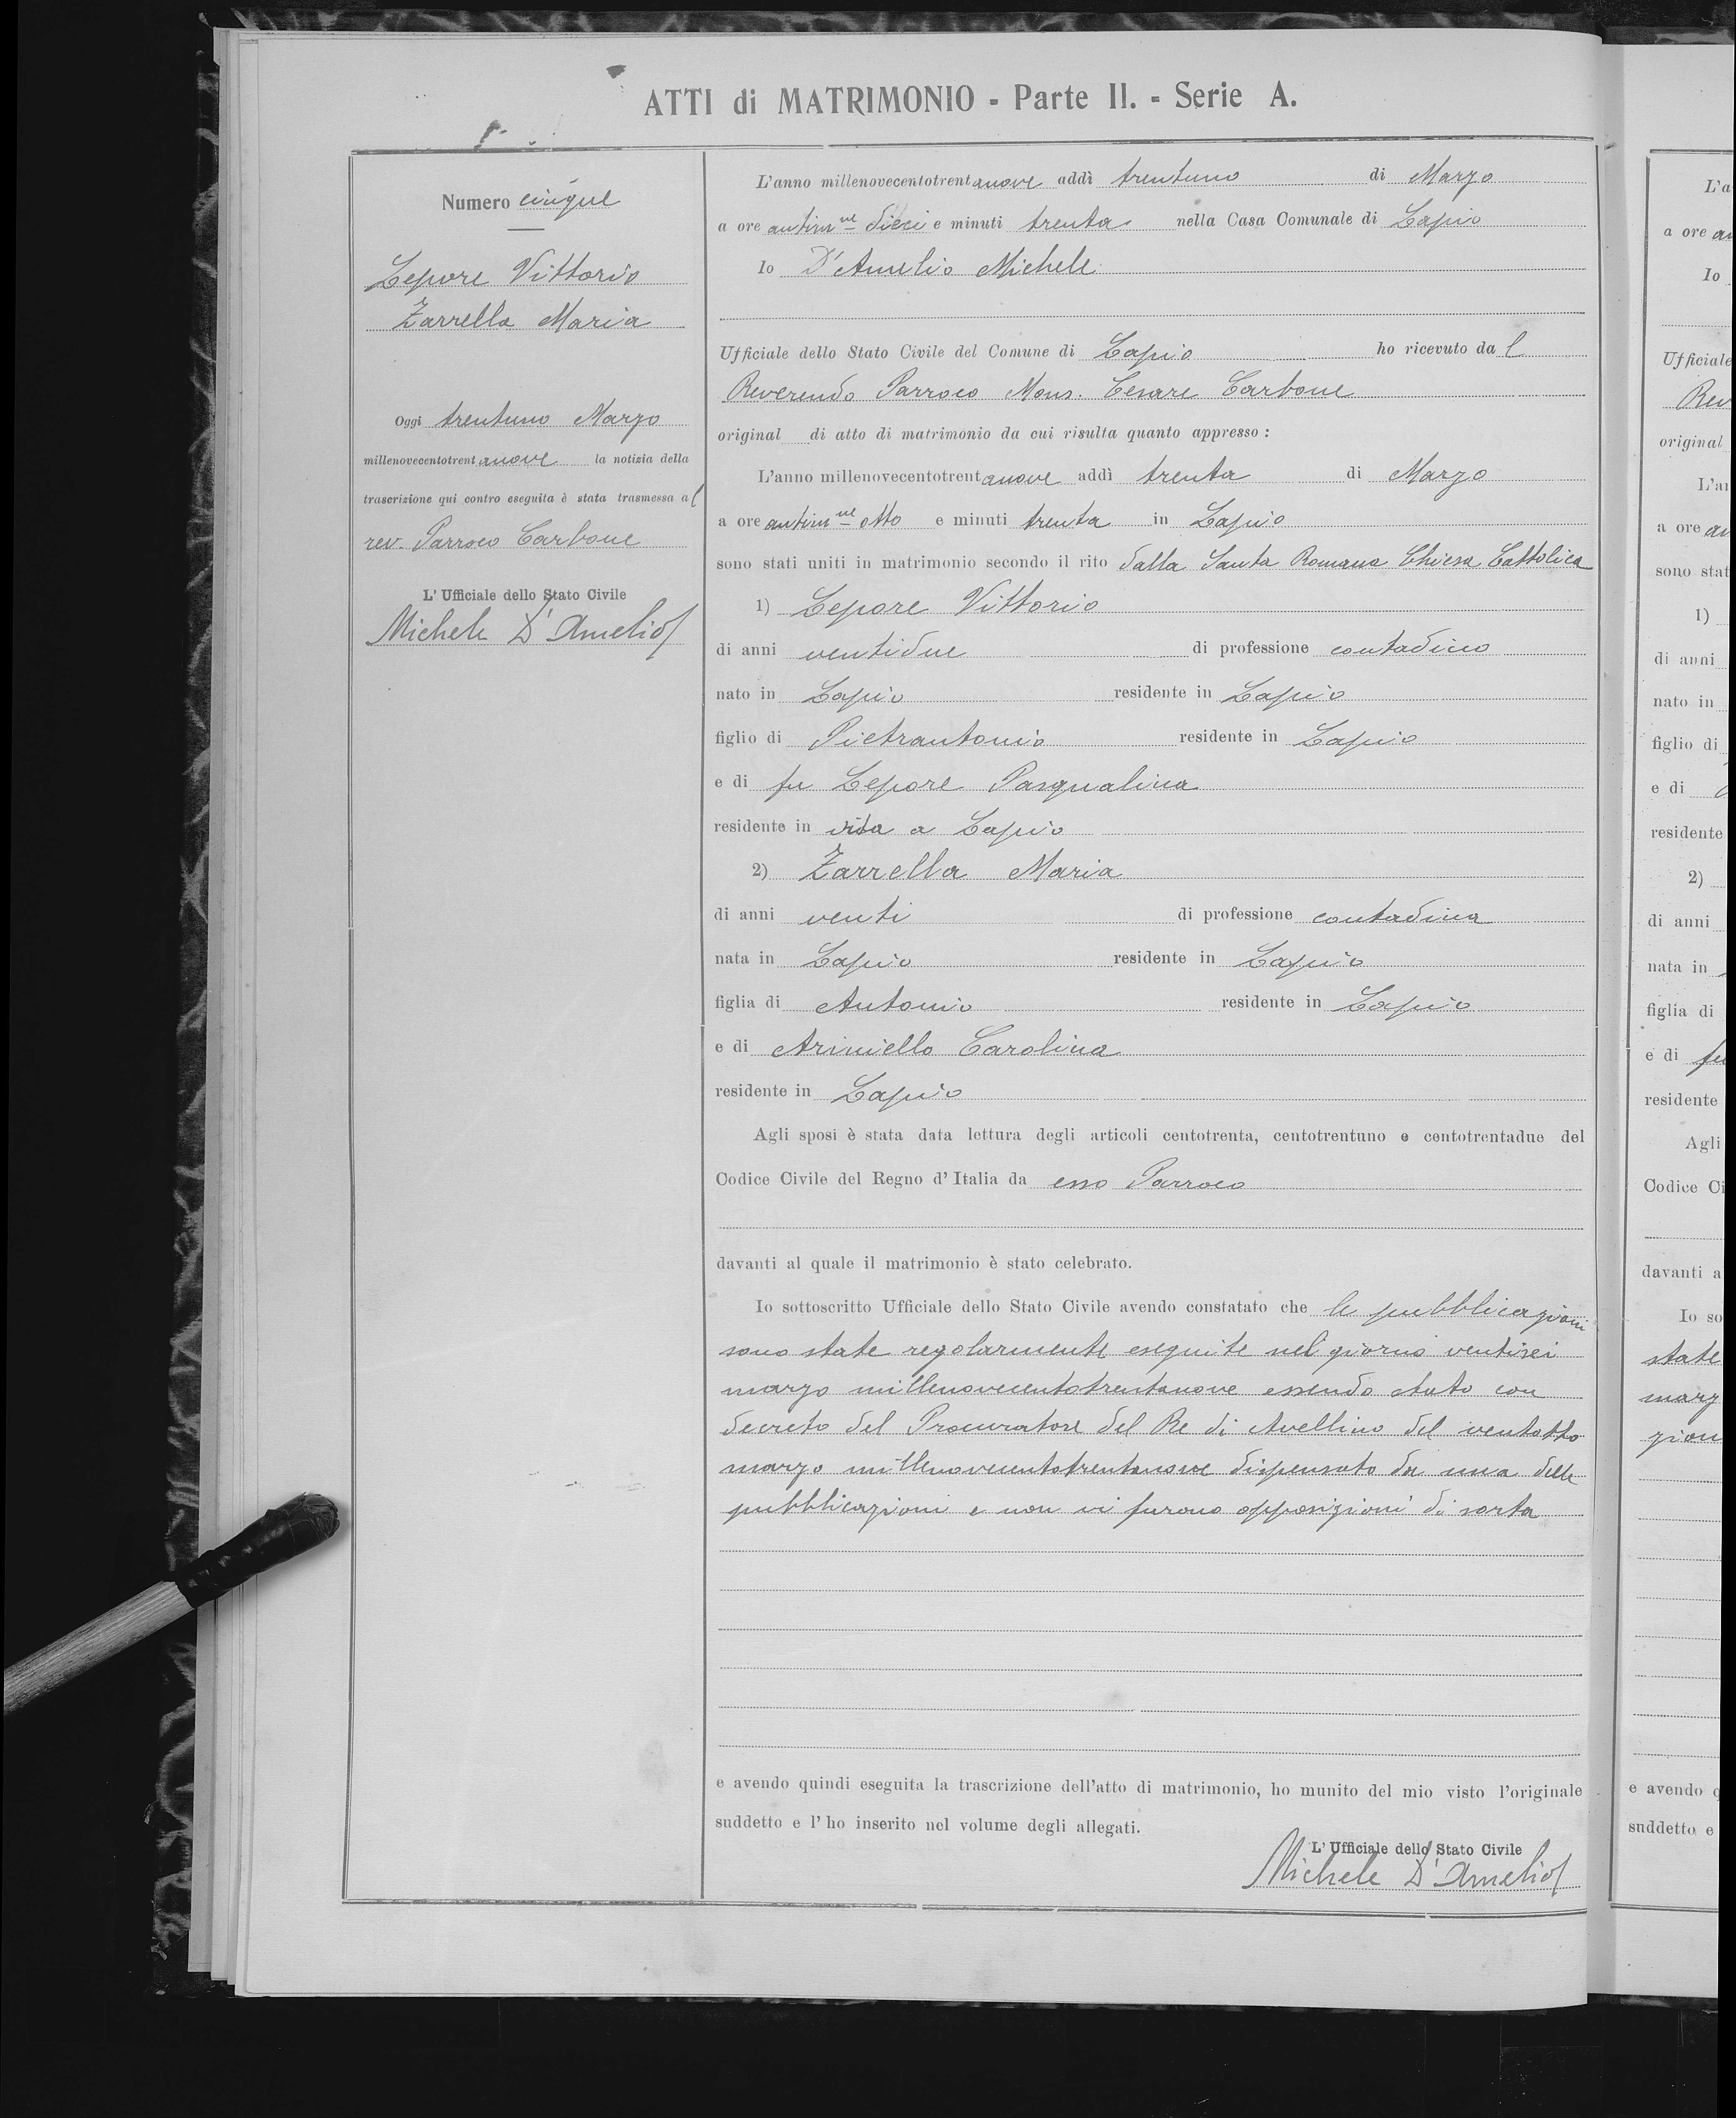 ATTI di MATRIMONIO - Parte II. - Serie A.
Numero cinque
Lepore Vittorio
Zarrella Maria
Oggi trentuno Marzo
millenovecentotrentanove la notizia della
trascrizione qui contro eseguita è stata trasmessa al
rev. Parroco Carbone
L'Ufficiale dello Stato Civile
Michele D'Amelio
L'anno millenovecentotrentanove addì trentuno di Marzo
a ore antimne dieci e minuti trenta nella Casa Comunale di Lapio
Io D'Amelio Michele
Ufficiale dello Stato Civile del Comune di Lapio ho ricevuto dal
Reverendo Parroco Mons. Cesare Carbone
original di atto di matrimonio da cui risulta quanto appresso :
L'anno millenovecentotrentanove addì trenta di Marzo
a ore antimne otto e minuti trenta in Lapio
sono stati uniti in matrimonio secondo il rito dalla Santa Romana Chiesa Cattolica
1) Lepore Vittorio
di anni ventidue di professione contadino
nato in Lapio residente in Lapio
figlio di Pietrantonio residente in Lapio
e di fu Lepore Pasqualina
residente in vita a Lapio
2) Zarrella Maria
di anni venti di professione contadina
nata in Lapio residente in Lapio
figlia di Antonio residente in Lapio
e di Ariniello Carolina
residente in Lapio
Agli sposi è stata data lettura degli articoli centotrenta, centotrentuno e centotrentadue del
Codice Civile del Regno d'Italia da esso Parroco
davanti al quale il matrimonio è stato celebrato.
Io sottoscritto Ufficiale dello Stato Civile avendo constatato che le pubblicazioni
sono state regolarmente eseguite nel giorno ventisei
marzo millenovecentotrentanove essendo stato con
decreto del Procuratore del Re di Avellino del ventotto
marzo millenovecentotrentanove dispensato da una delle
pubblicazioni e non vi furono opposizioni di sorta
e avendo quindi eseguita la trascrizione dell'atto di matrimonio, ho munito del mio visto l'originale
suddetto e l'ho inserito nel volume degli allegati.
L'Ufficiale dello Stato Civile
Michele D'Amelio
L'a
a ore an
Io
Ufficiale
Rev
original
L'an
a ore an
sono stat
1)
di anni
nato in
figlio di
e di
residente
2)
di anni
nata in
figlia di
e di fu
residente
Agli
Codice Ci
davanti a
Io so
state
marz
zion
e avendo q
suddetto e